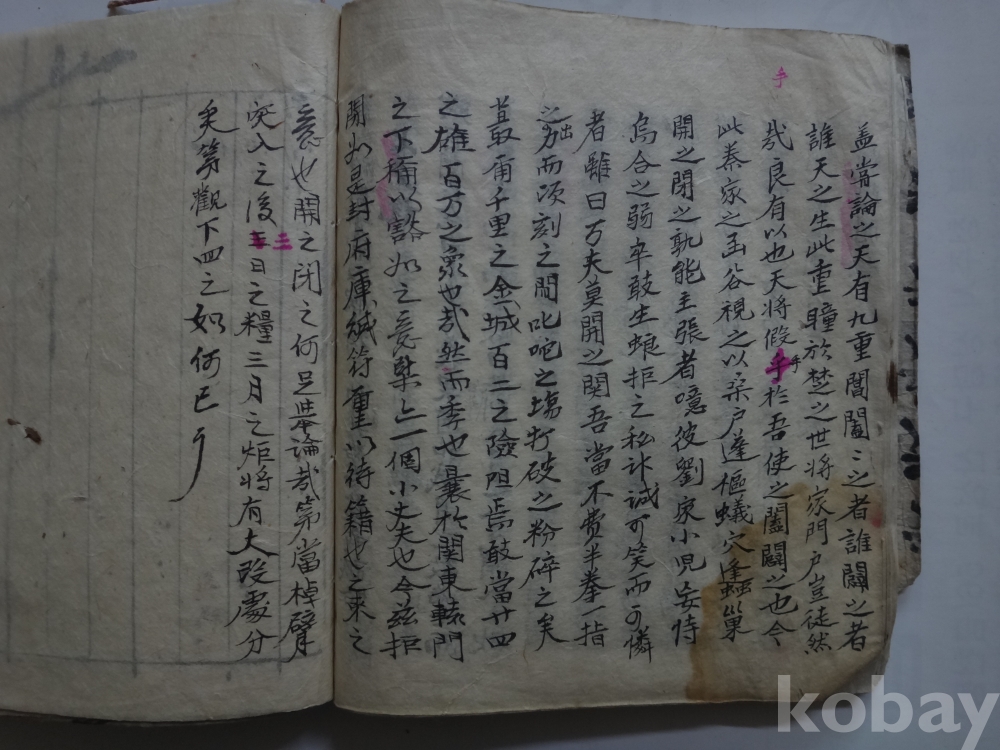 手
盖嘗論之天有九重閶闔〻之者誰闢之者
誰天之生此重瞳於楚之世將家門戶豈徒然
㢤良有以也天將假手於吾使之闔闢之也今
手
此秦家之函谷視之以桑戶蓬樞蟻穴蜂巢
開之閉之孰能主張者噫彼劉家小児妄恃
烏合之弱卒敢生蜋拒之私計誠可笑而可憐
者雖曰万夫莫開之関吾當不费半拳一指
之勞而頃刻之間叱咤之塲打破之粉碎之矣
甫千里之金城百二之險阻焉敢當廿四
之雄百万之衆也㢤然而季也曩於関東轅門
之下稱以豁如之㐧一個小丈夫也今玆拒
関如是封府庫緘符璽以待籍也之来之
意也開之閉之何足論㢤第當掉臂
突入之後三日之糧三月之炬將有大改處分
矣第觀下回之如何已